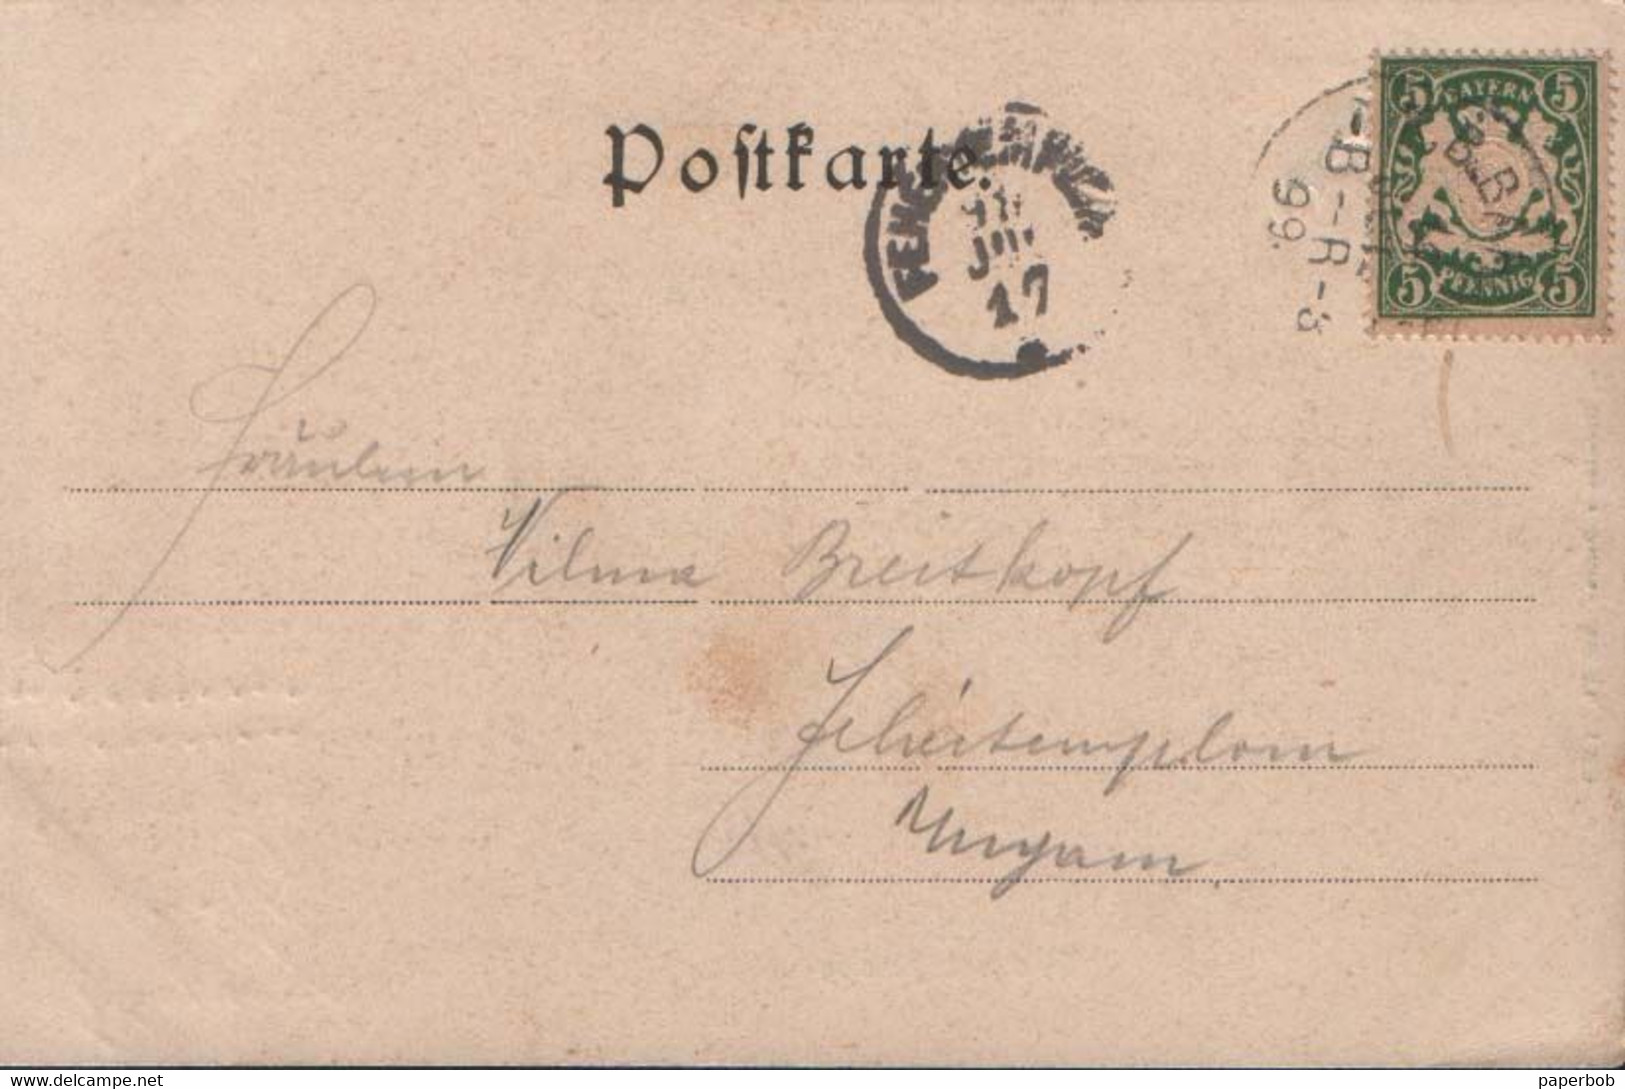 Postkarte.
BAYERN
5 5
PFENNIG
5 5
99
JUN
17
Fräulein
Vilma Breitkopf
Fehértemplom
Ungarn.
www.delcampe.net
paperbob